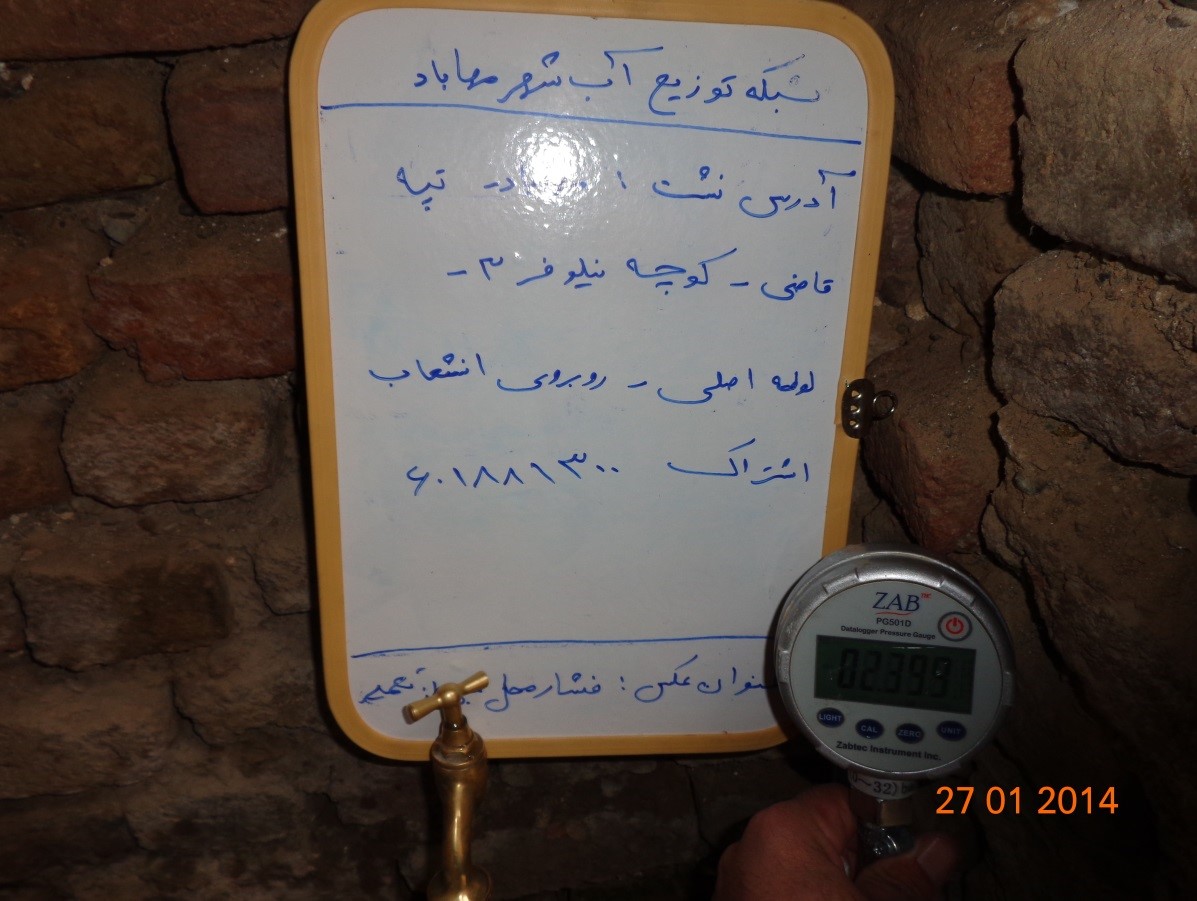 شبکه توزیع آب شهر مهاباد
آدرس نشت تپه
قاضی - کوچه نیلوفر ۳ -
لوله اصلی - روبروی انشعاب
اشتراک ۶۰۱۸۸۱۳۰۰
عنوان عکس : فشار محل تعمیر
ZAB
PG501D
Datalogger Pressure Gauge
02.399
LIGHT CAL ZERO UNIT
Zabtec Instrument Inc.
27 01 2014